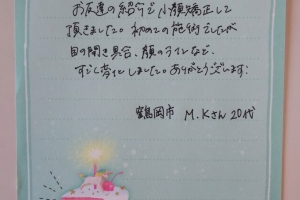 お友達の紹介で小顔矯正して
頂きました。初めての施術でしたが
目の開き具合、顔のラインなど、
すごく変化しました。ありがとうございます.
鶴岡市 M.Kさん 20代